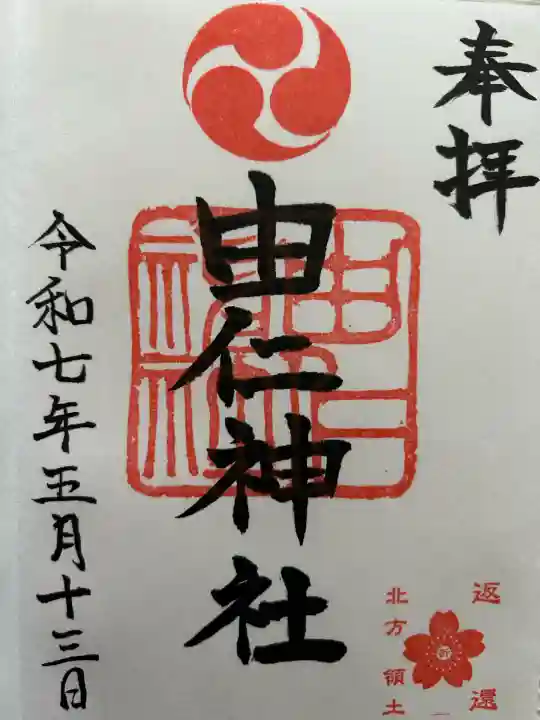 奉拝
由仁神社
由仁神社
令和七年五月十三日
返還
祈
北方領土